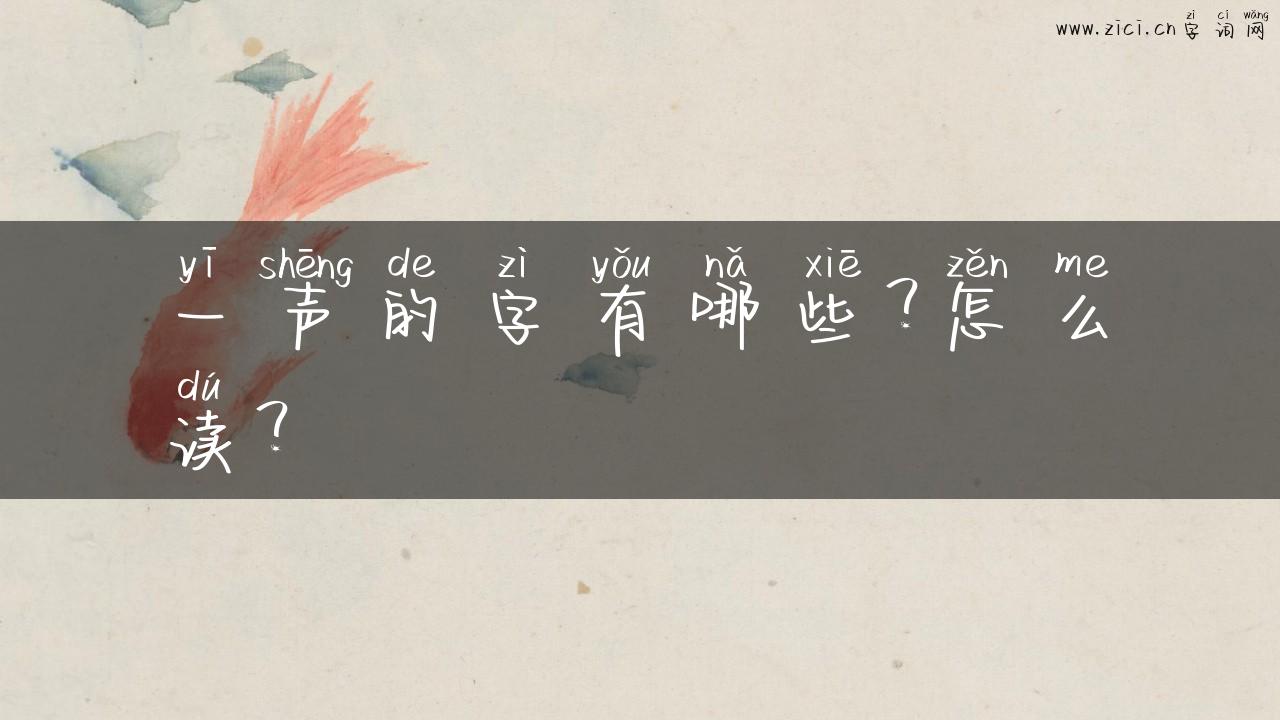 zì cí wǎng
www.zici.cn字词网
yī shēng de zì yǒu nǎ xiē zěn me
一声的字有哪些?怎么
dú
读?